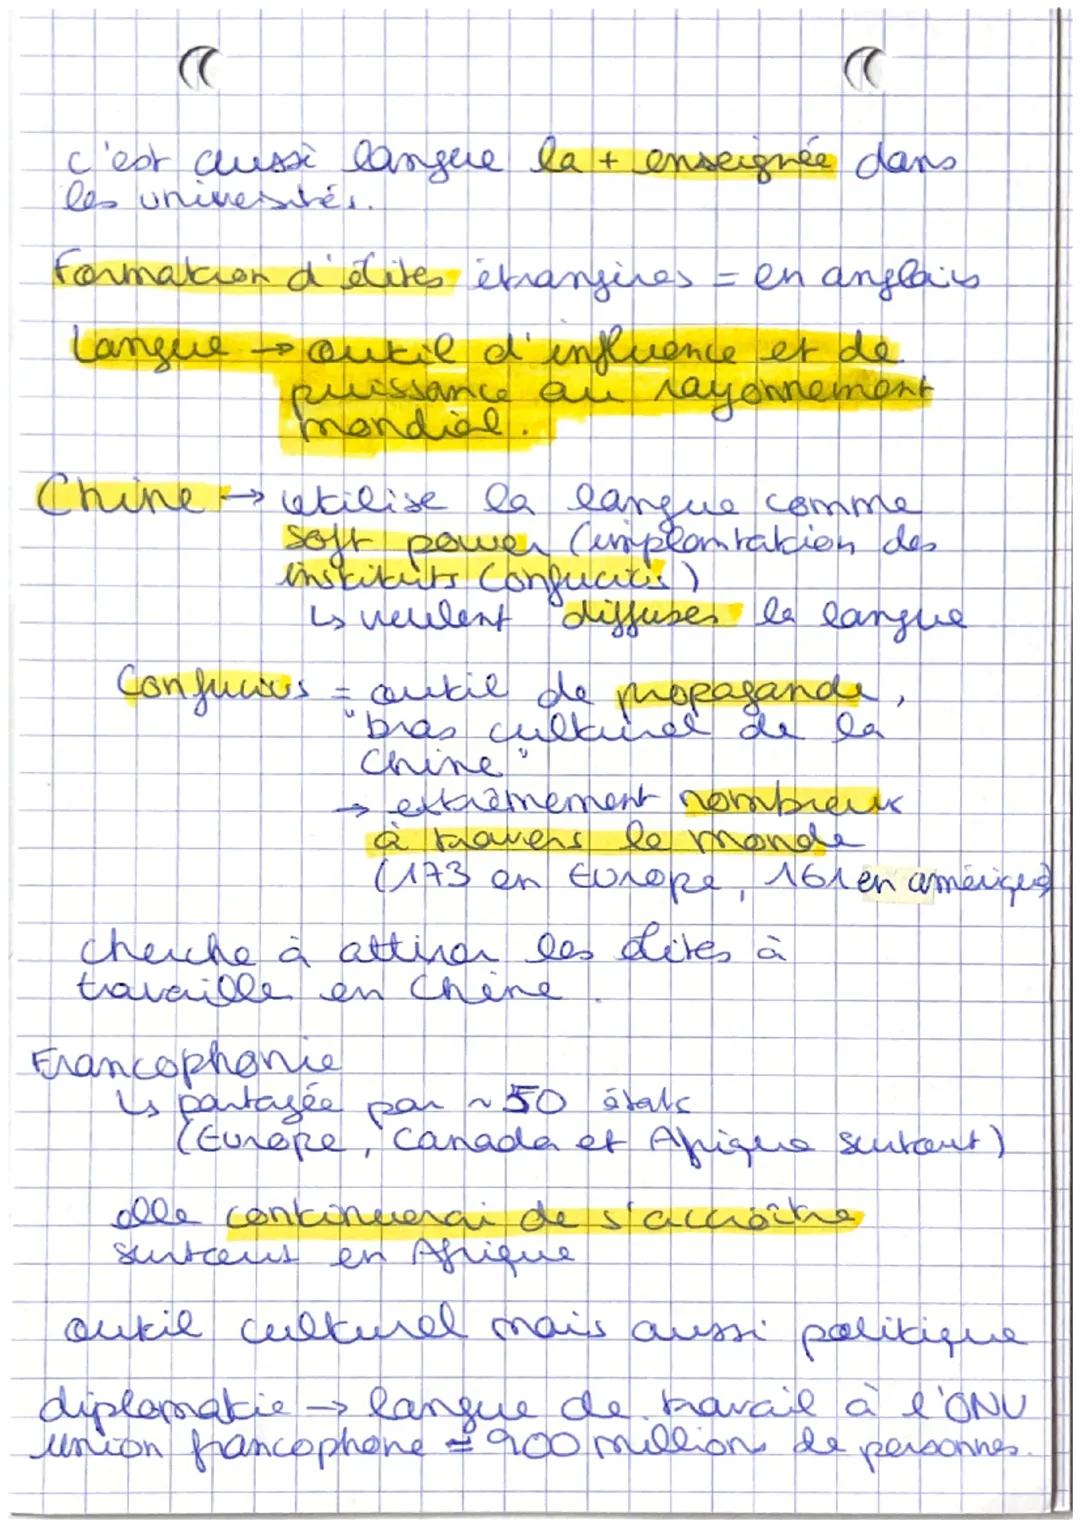 c'est aussi langue la + enseignée dans
les universités.
Formation d'élites étrangères = en anglais
Langue → outil d'influence et de
puissance au rayonnement
mondial.
Chine → utilise la langue comme
soft power (implantation des
instituts Confucius)
↳ veulent diffuser la langue
Confucius = outil de propagande,
"bras culturel de la
Chine"
→ extrêmement nombreux
à travers le monde
(173 en Europe, 161 en amérique)
cherche à attirer les élites à
travaille en Chine.
Francophonie
↳ partagée par ~ 50 états
(Europe, Canada et Afrique surtout)
elle continuerai de s'accroître
surtout en Afrique
outil culturel mais aussi politique
diplomatie → langue de travail à l'ONU
union francophone = 900 millions de personnes.